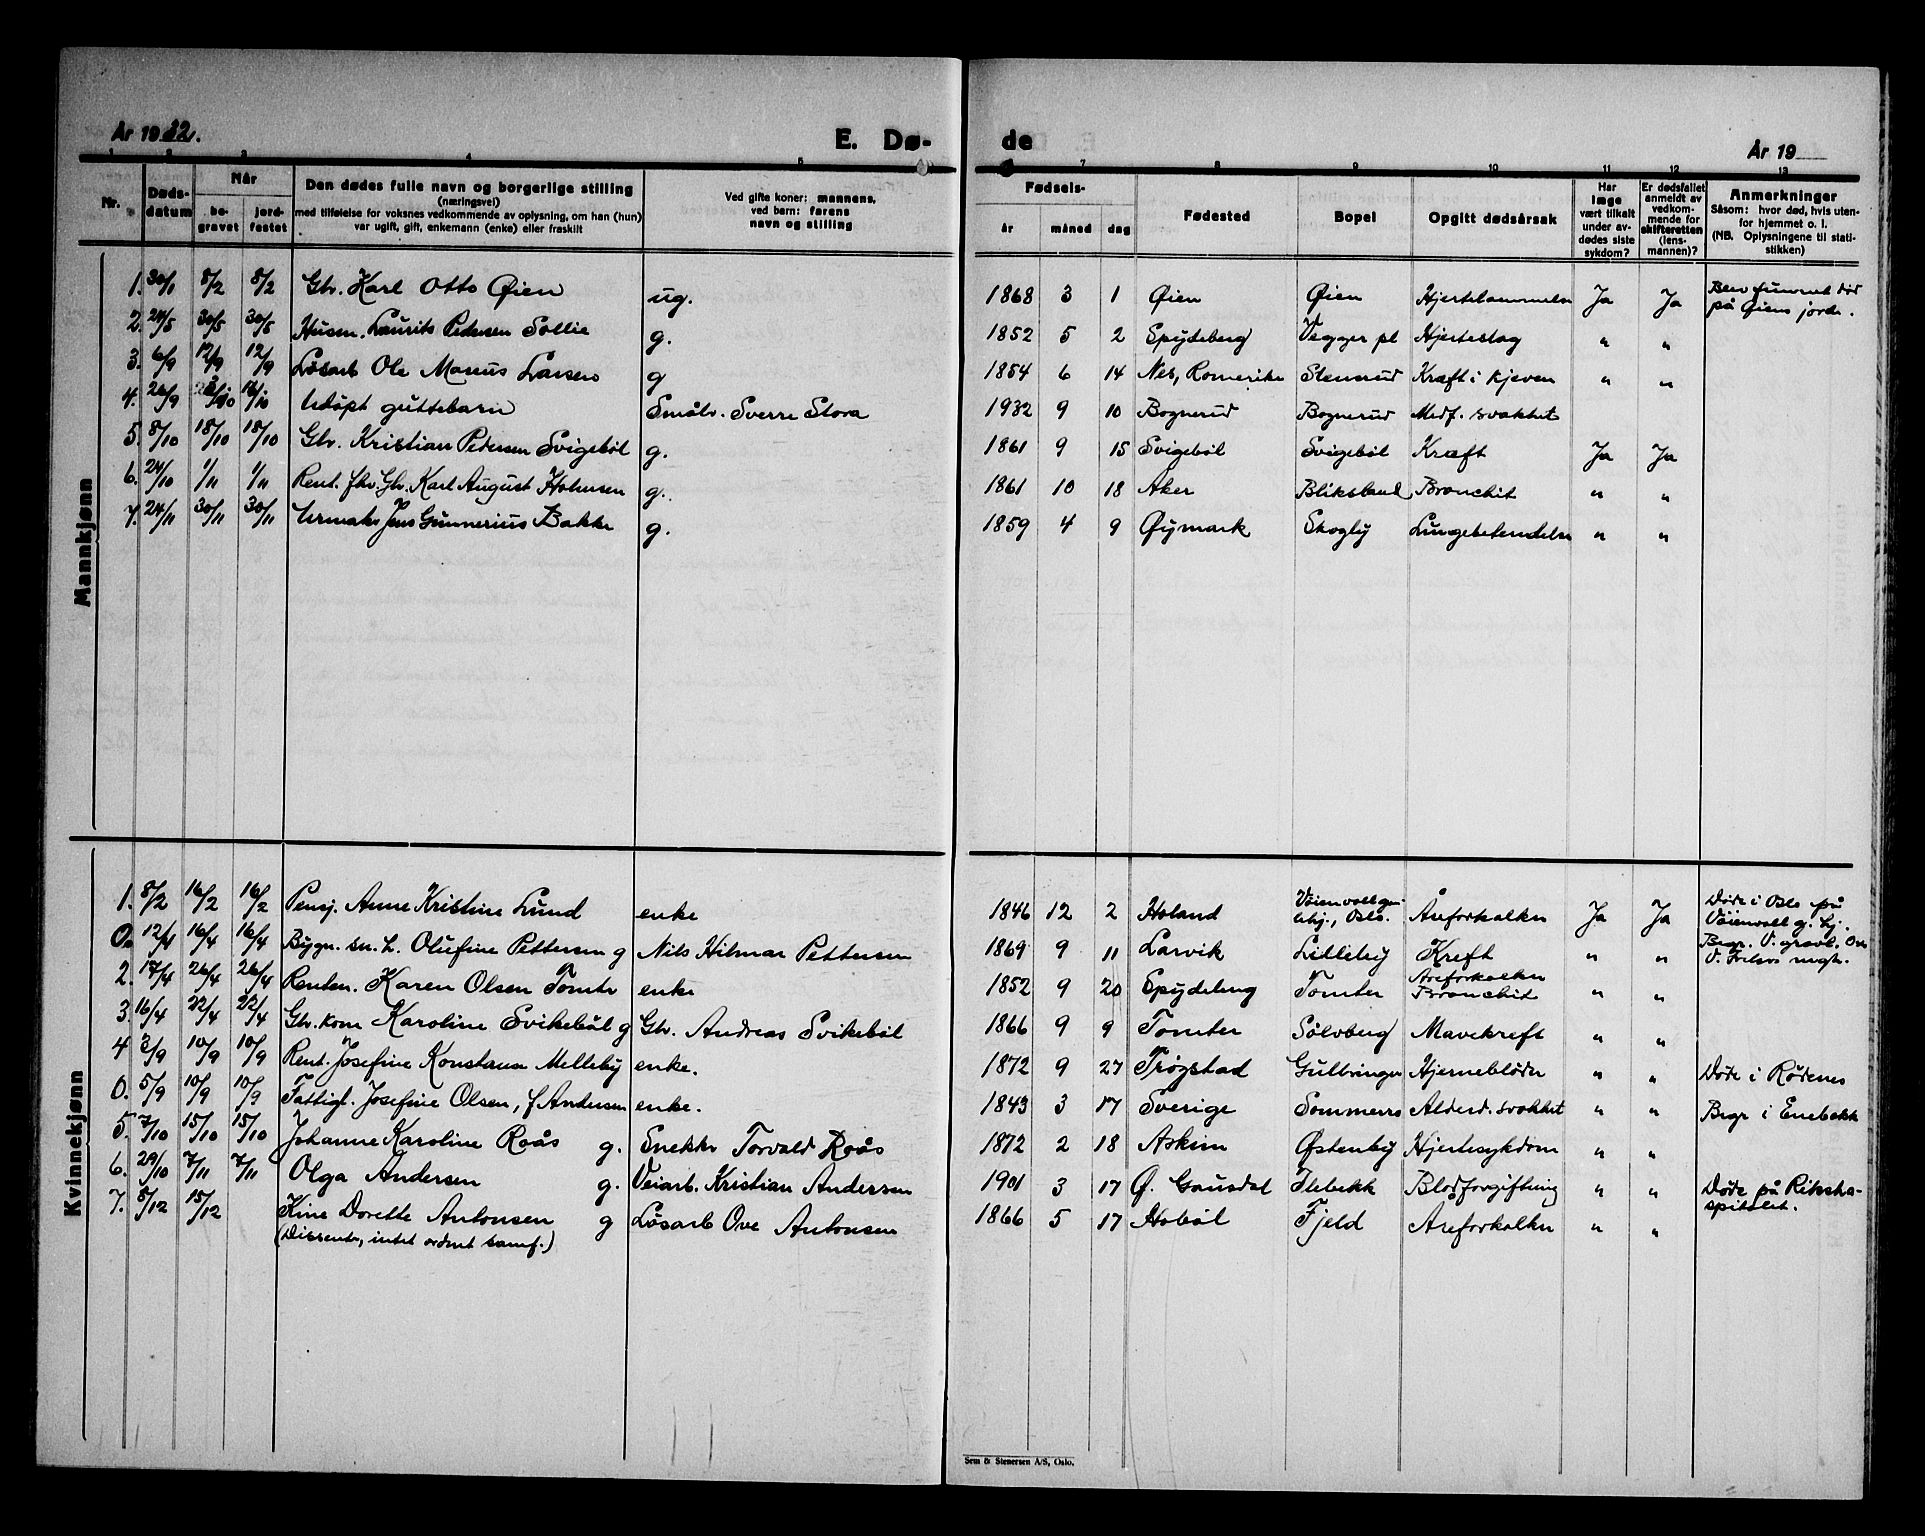 År 1932.
E. Dø-
de
År 19
1 2 3 4 5 6 7 8 9 10 11 12 13
Nr.
Døds-
datum
Når
be-
gravet
jord-
festet
Den dødes fulle navn og borgerlige stilling
(næringsvei)
med tilføielse for voksnes vedkommende av oplysning, om han (hun)
var ugift, gift, enkemann (enke) eller fraskilt
Ved gifte koner: mannens,
ved barn: farens
navn og stilling
Fødsels-
år måned dag
Fødested
Bopel
Opgitt dødsårsak
Har
læge
vært tilkalt
under av-
dødes siste
sykdom?
Er dødsfallet
anmeldt av
vedkom-
mende for
skifteretten
(lens-
mannen)?
Anmerkninger
Såsom: hvor død, hvis uten-
for hjemmet o. l.
(NB. Oplysningene til stati-
stikken)
Mannkjønn
1. 30/1 8/2 8/2 Gbr. Karl Otto Øien ug. 1868 3 1 Øien Øien Hjertelammelse Ja Ja Blev funnet død
på Øiens jorde.
2. 24/5 30/5 30/5 Husm. Laurits Pedersen Sollie g. 1852 5 2 Spydeberg Vegger pl Hjerteslag " "
3. 6/9 12/9 12/9 Løsarb Ole Marius Larsen g 1854 6 14 Nes, Romerike Stenerud Kræft i kjeven " "
4. 26/9 16/10 Udøpt guttebarn Småbr. Sverre Stora 1932 9 10 Bognerud Bognerud Medf. svakhet
5. 8/10 18/10 18/10 Gbr. Kristian Pedersen Svigebøl g. 1861 9 15 Svigebøl Svigebøl Kræft Ja Ja
6. 24/10 1/11 1/11 Rent. fhv. Gbr. Karl August Holmsen g. 1861 10 18 Aker Bliksland Bronchit " "
7. 24/11 30/11 30/11 Urmaker Jens Gunnerius Bakke g. 1859 4 9 Øymark Skogly Lungebetendelse " "
Kvinnekjønn
1. 8/2 16/2 16/2 Pensj. Anne Kristine Lund enke 1846 12 2 Høland Vøienvollgm
hj., Oslo. Åreforkalkn Ja Ja Døde i Oslo på
Vøienvoll g. hj.
0. 12/4 16/4 16/4 Bygn. sn. h. Olufine Pettersen g Nils Hilmar Pettersen 1869 9 11 Larvik Lilleby Kreft " " Begr. V. gravl. Oslo
2. 17/4 26/4 26/4 Renten. Karen Olsen Tomter enke 1852 9 20 Spydeberg Tomter Åreforkalkn
Bronchit " "
3. 16/4 22/4 22/4 Gbr.kone Karoline Svikebøl g Gbr. Andreas Svikebøl 1866 9 9 Tomter Sølvberg Mavekreft " "
4 3/9 10/9 10/9 Rent. Josefine Konstanse Melleby enke. 1872 9 27 Trøgstad Gulbringen Hjerneblødn " " Døde i Rødenes
0. 5/9 10/9 10/9 Fattigl. Josefine Olsen, f Andersen enke. 1843 3 17 Sverige Sommerro Alderd. svakhet " " Begr i Enebakk
5. 7/10 15/10 15/10 Johanne Karoline Roås g. Snekker Torvald Roås 1872 2 18 Askim Østenby Hjertesykdom " "
6. 29/10 7/11 7/11 Olga Andersen g. Veiarb. Kristian Andersen 1901 3 17 Ø. Gausdal Ilebekk Blodforgiftning " " Døde på Riksho-
spitalet.
7. 8/12 15/12 Kine Dorette Antonsen g Løsarb Ove Antonsen 1866 5 17 Hobøl Fjeld Åreforkalkn " "
(Dissenter, intet ordnet samf.)
Sem & Stenersen A/S, Oslo.